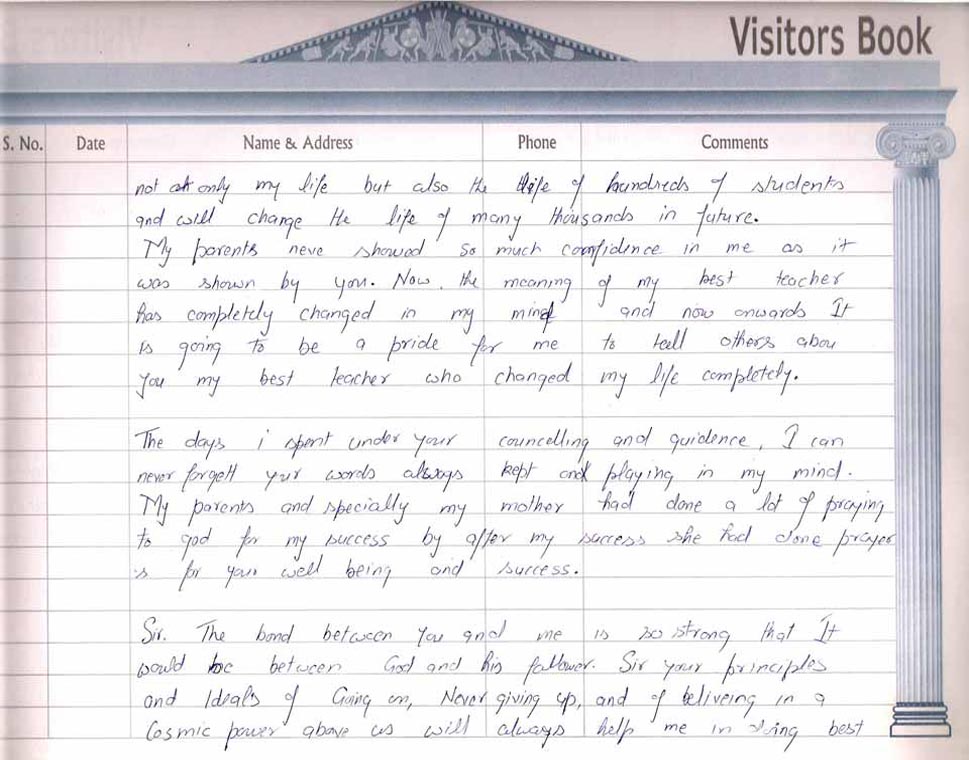 Visitors Book
S. No. Date Name & Address Phone Comments
not only my life but also the life of hundreds of students
and will change the life of many thousands in future.
My parents neve showed so much confidence in me as it
was shown by you. Now, the meaning of my best teacher
has completely changed in my mind and now onwards It
is going to be a pride for me to tell others abou
you my best teacher who changed my life completely.
The days i spent under your councelling and guidence, I can
never forgett your words always kept and playing in my mind.
My parents and specially my mother had done a lot of praying
to god for my success by after my success she had done prayer
is for your well being and success.
Sir. The bond between you and me is so strong that It
would be between God and his follower. Sir your principles
and Ideals of Going on, Never giving up, and of beliveing in a
Cosmic power above us will always help me in doing best